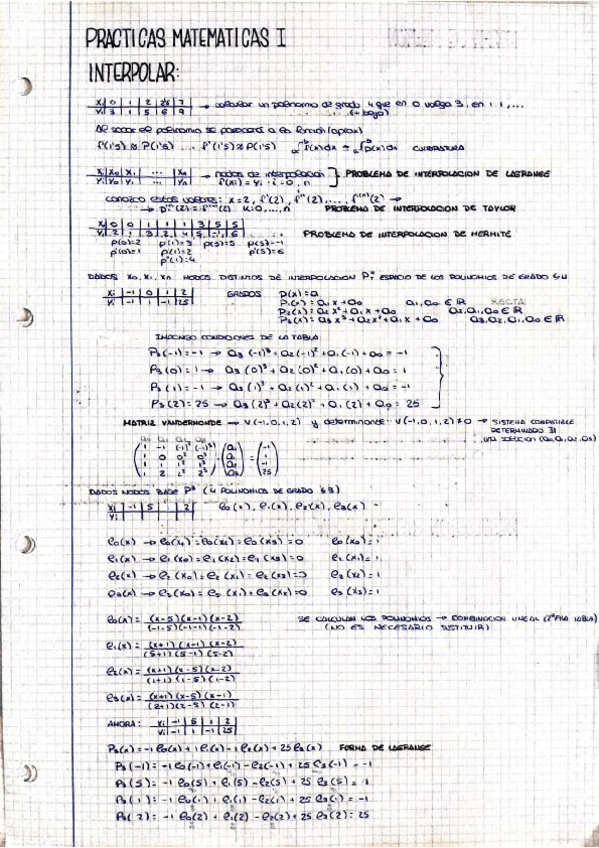 PRACTICAS MATEMATICAS I
INTERPOLAR:
X 0 1 2 25 7 → calcular un polinomio de grado 4 que en 0 valga 3, en 1 1, ...
Y 3 1 5 6 9
Al sacar el polinomio se parecerá a la función (aprox)
CUADRATURA
Xi X0 X1 ... Xn → nodos de interpolación } PROBLEMA DE INTERPOLACION DE LAGRANGE
Yi Y0 Y1 ... Yn f(xi) = yi i=0, n
conozco estos valores: x=2, f'(2), f''(2), ..., →
PROBLEMA DE INTERPOLACION DE TAYLOR
X 0 0 1 1 1 3 5 5 PROBLEMA DE INTERPOLACION DE HERMITE
Y 2 1 3 2 4 5 -1 6
p(0)=2 p(1)=3 p(3)=5 p(5)=-1
p'(0)=1 p'(1)=2 p'(5)=6
p''(1)=4
DADOS X0, X1, Xn NODOS DISTINTOS DE INTERPOLACION
ESPACIO DE LOS POLINOMIOS DE GRADO ≤n
Xi -1 0 1 2 GRADOS P(x)=a
Yi -1 1 -1 25 P1(x)= a1x + a0 a1, a0 ∈ R RECTA
P2(x)= a2x² + a1x + a0 a2, a1, a0 ∈ R
P3(x)= a3x³ + a2x² + a1x + a0 a3, a2, a1, a0 ∈ R
IMPONGO CONDICIONES DE LA TABLA
P3(-1) = -1 → a3(-1)³ + a2(-1)² + a1(-1) + a0 = -1
P3(0) = 1 → a3(0)³ + a2(0)² + a1(0) + a0 = 1
P3(1) = -1 → a3(1)³ + a2(1)² + a1(1) + a0 = -1
P3(2) = 25 → a3(2)³ + a2(2)² + a1(2) + a0 = 25
MATRIZ VANDERMONDE → V(-1,0,1,2) y determinante V(-1,0,1,2) ≠ 0 → SISTEMA COMPATIBLE
DETERMINADO ∃!
una solución (a0, a1, a2, a3)
a0 a1 a2 a3
1 -1 (-1)² (-1)³ a0 -1
1 0 0² 0³ a1 1
1 1 1² 1³ a2 -1
1 2 2² 2³ a3 25
DADOS NODOS BASE P³ (4 POLINOMIOS DE GRADO ≤3)
Xi -1 5 2 e0(x), e1(x), e2(x), e3(x)
Yi
e0(x) → e0(x1) = e0(x2) = e0(x3) = 0 e0(x0) = 1
e1(x) → e1(x0) = e1(x2) = e1(x3) = 0 e1(x1) = 1
e2(x) → e2(x0) = e2(x1) = e2(x3) = 0 e2(x2) = 1
e3(x) → e3(x0) = e3(x1) = e3(x2) = 0 e3(x3) = 1
e0(x) = (x-5)(x-1)(x-2) / (-1-5)(-1-1)(-1-2) SE CALCULAN LOS POLINOMIOS → COMBINACION LINEAL (2ª FILA TABLA)
(NO ES NECESARIO SUSTITUIR)
e1(x) = (x+1)(x-1)(x-2) / (5+1)(5-1)(5-2)
e2(x) = (x+1)(x-5)(x-2) / (1+1)(1-5)(1-2)
e3(x) = (x+1)(x-5)(x-1) / (2+1)(2-5)(2-1)
AHORA: Xi -1 5 1 2
Yi -1 1 -1 25
P3(x) = -1 e0(x) + 1 e1(x) - 1 e2(x) + 25 e3(x) FORMA DE LAGRANGE
P3(-1) = -1 e0(-1) + e1(-1) - e2(-1) + 25 e3(-1) = -1
P3(5) = -1 e0(5) + e1(5) - e2(5) + 25 e3(5) = 1
P3(1) = -1 e0(1) + e1(1) - e2(1) + 25 e3(1) = -1
P3(2) = -1 e0(2) + e1(2) - e2(2) + 25 e3(2) = 25